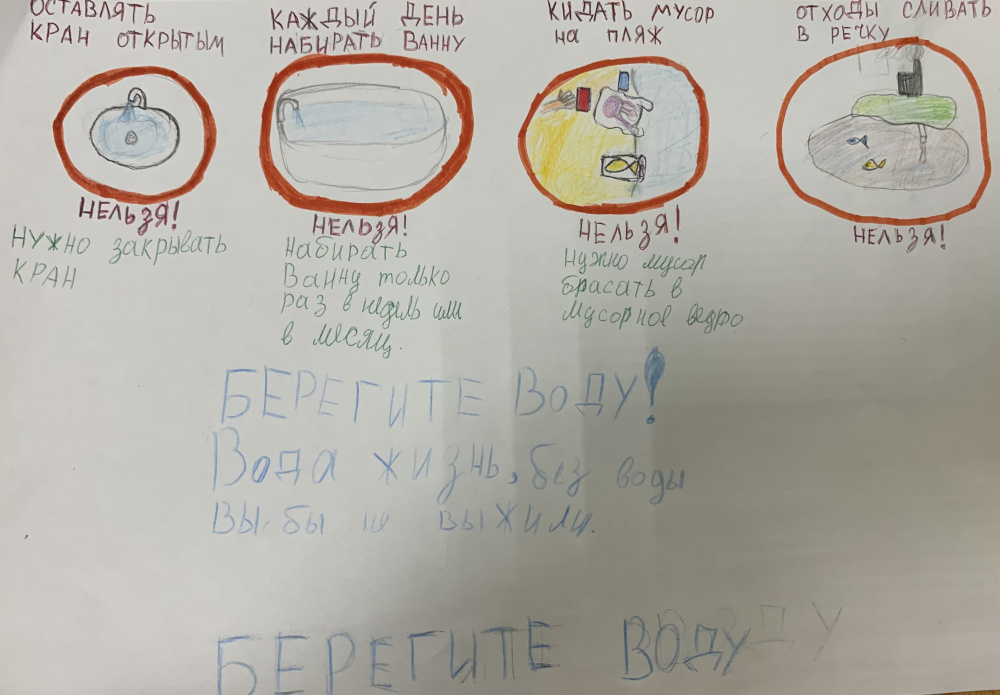 ОСТАВЛЯТЬ
КРАН ОТКРЫТЫМ
НЕЛЬЗЯ!
НУЖНО закрывать
КРАН
КАЖДЫЙ ДЕНЬ
НАБИРАТЬ ВАННУ
НЕЛЬЗЯ!
набирать
Ванну только
раз в недель или
в месяц.
КИДАТЬ МУСОР
на пляж
НЕЛЬЗЯ!
Нужно мусор
брасать в
Мусорное ведро
ОТХОДЫ СЛИВАТЬ
В РЕЧКУ
НЕЛЬЗЯ!
БЕРЕГИТЕ ВОДУ!
Вода жизнь, без воды
вы бы не выжили.
БЕРЕГИТЕ ВОДУ